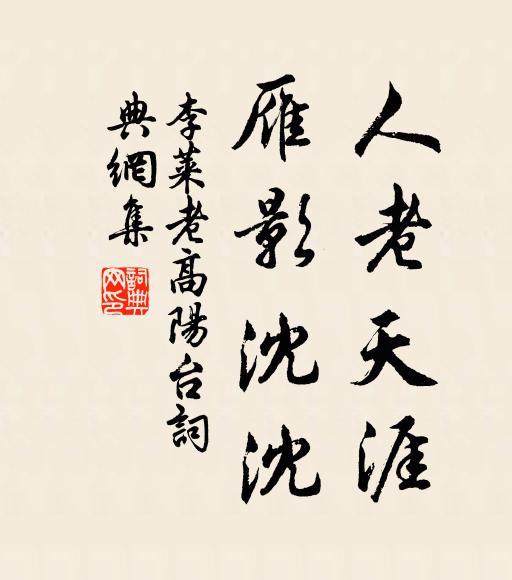 人老天涯
雁影沈沈
李萊老高陽台詞
典網集
詞典网印